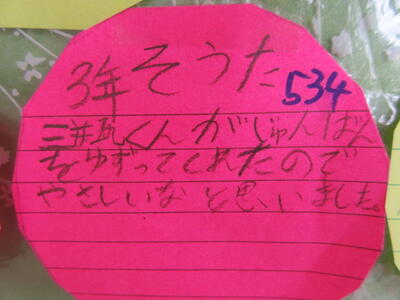 3年 そうた
534
三井凪くんがじゅんばん
をゆずってくれたので
やさしいなと思いました。